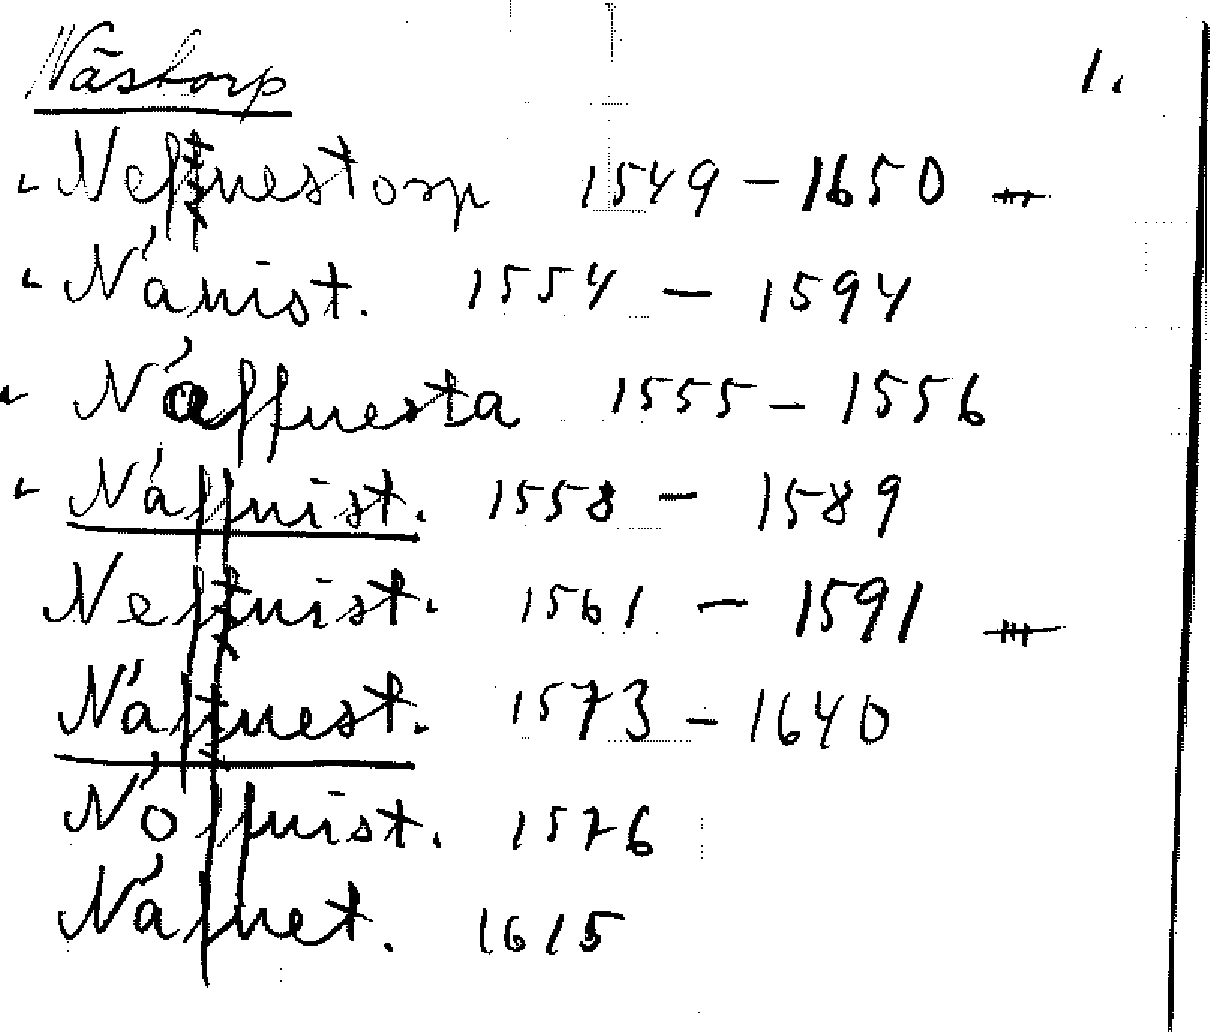 Nästorp 1.
Neffnestorp 1549 – 1650
Nánist. 1554 – 1594
Náffnesta 1555 – 1556
Náffnist. 1558 – 1589
Neffnist. 1561 – 1591
Náffnest. 1573 – 1640
Nóffnist. 1576
Náffnet. 1615